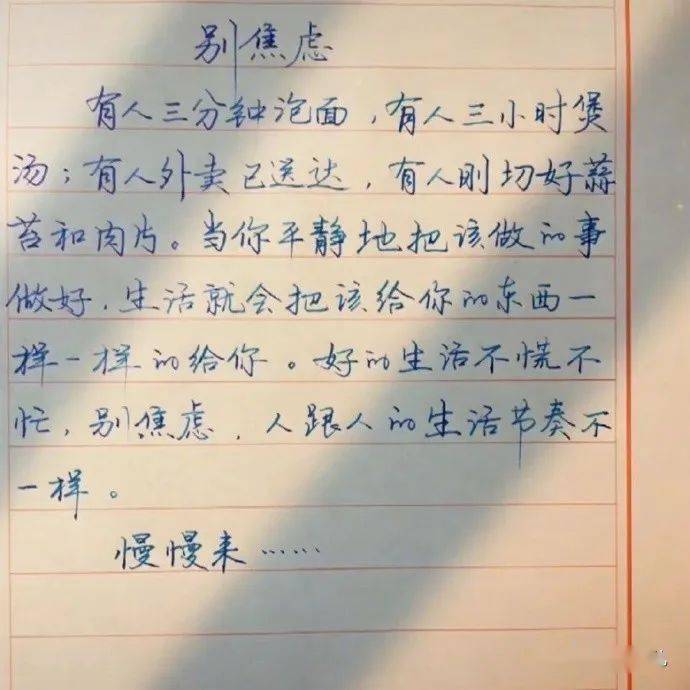 别焦虑
有人三分钟泡面，有人三小时煲
汤；有人外卖已送达，有人刚切好蒜
苔和肉片。当你平静地把该做的事
做好，生活就会把该给你的东西一
样一样的给你。好的生活不慌不
忙，别焦虑，人跟人的生活节奏不
一样。
慢慢来……